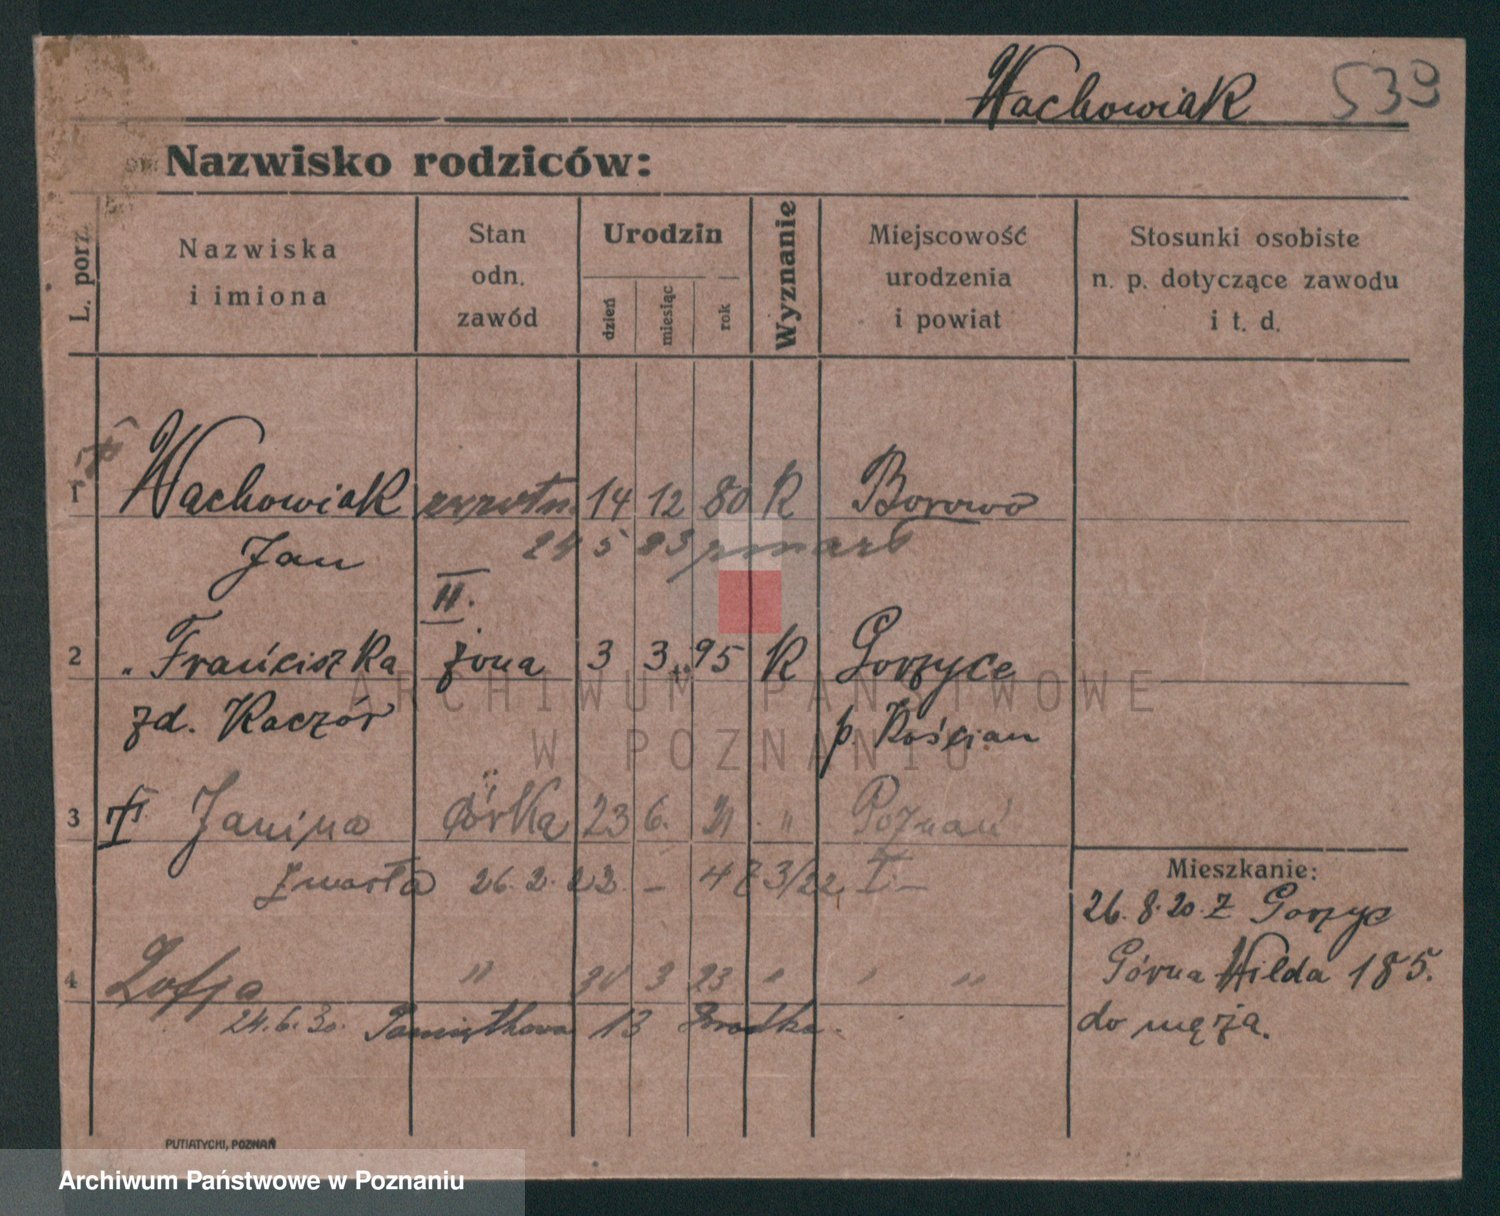 Wachowiak 539
Nazwisko rodziców:
L. porz. Nazwiska i imiona Stan odn. zawód Urodzin dzień miesiąc rok Wyznanie Miejscowość urodzenia i powiat Stosunki osobiste n. p. dotyczące zawodu i t. d.
1 Wachowiak 14 12 80 K Borowo
Jan 24 5 zmarł
II.
2 " Franciszka żona 3 3 95 K Gorzyce
zd. Kaczór p. Kościan
3 Janina córka 23 6. 21 " Poznań
zmarła 26. 2. 22. – 3/22 I –
Mieszkanie:
26. 8. 20 z Gorzyc
4 Zofja " 3 23 " " "
Górna Wilda 185.
24. 6. 30. 13
do męża.
PUTIATYCKI, POZNAŃ
ARCHIWUM PAŃSTWOWE
W POZNANIU
Archiwum Państwowe w Poznaniu